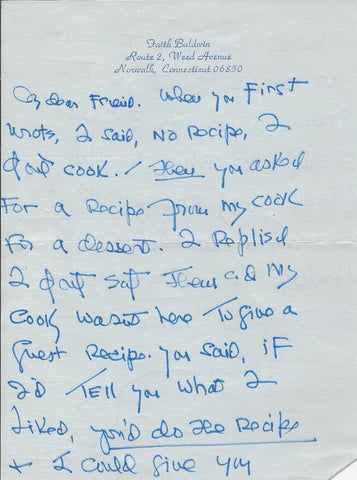 Faith Baldwin
Route 2, Weed Avenue
Norwalk, Connecticut 06850
My dear Friend. When you First
wrote, I said, No Recipe, I
don't cook. / Then you asked
For a Recipe from my cook
For a dessert. I Replied
I don't eat Them and my
cook wasn't here To give a
guest Recipe. You said, iF
I'd Tell you what I
Liked, you'd do the Recipe
+ I could give you